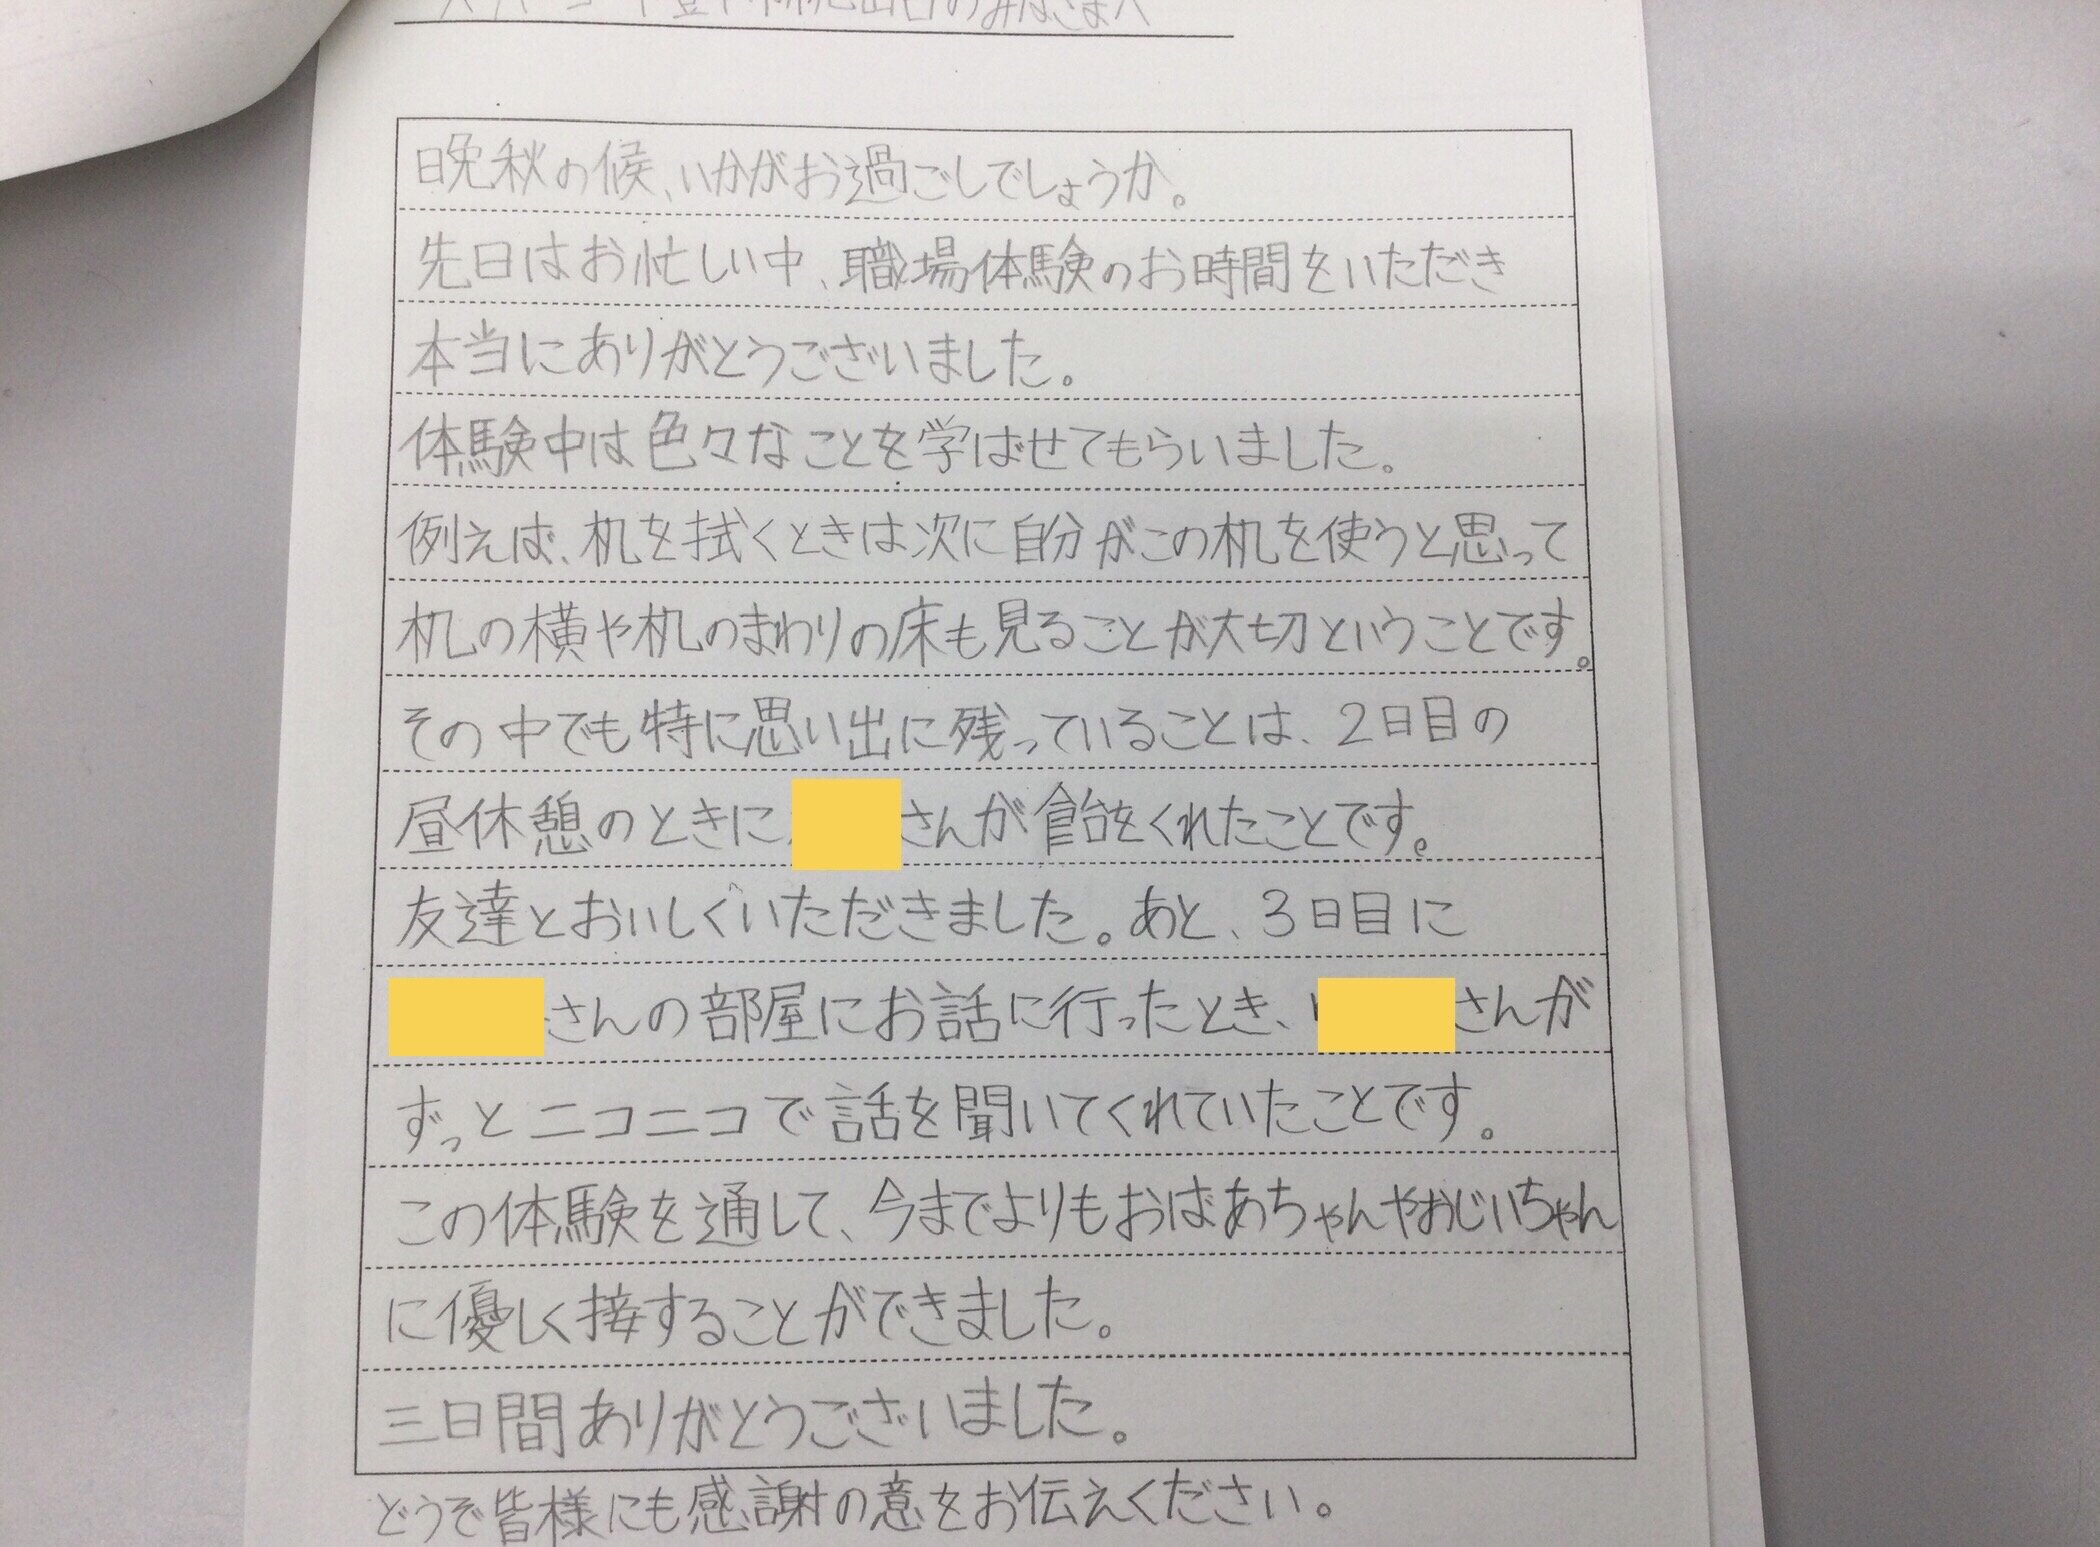 のみなさまへ
晩秋の候、いかがお過ごしでしょうか。
先日はお忙しい中、職場体験のお時間をいただき
本当にありがとうございました。
体験中は色々なことを学ばせてもらいました。
例えば、机を拭くときは次に自分がこの机を使うと思って
机の横や机のまわりの床も見ることが大切ということです。
その中でも特に思い出に残っていることは、2日目の
昼休憩のときに さんが飴をくれたことです。
友達とおいしくいただきました。あと、3日目に
さんの部屋にお話に行ったとき、 さんが
ずっとニコニコで話を聞いてくれていたことです。
この体験を通して、今までよりもおばあちゃんやおじいちゃん
に優しく接することができました。
三日間ありがとうございました。
どうぞ皆様にも感謝の意をお伝えください。